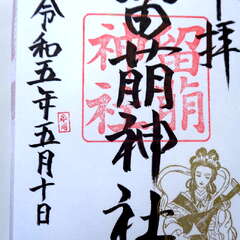 拝
留萌神社
留萌
神社
令和五年五月十日